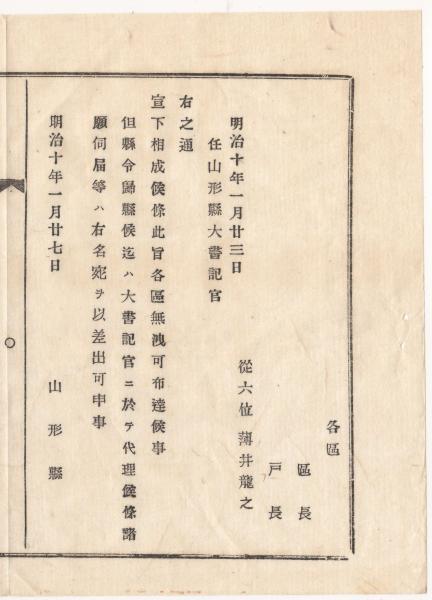 各區
區長
戸長
從六位 薄井龍之
明治十年一月廿三日
任山形縣大書記官
右之通
宣下相成候條此旨各區無洩可布達候事
但縣令歸縣候迄ハ大書記官ニ於テ代理候條諸
願伺届等ハ右名宛ヲ以差出可申事
明治十年一月廿七日
山形縣